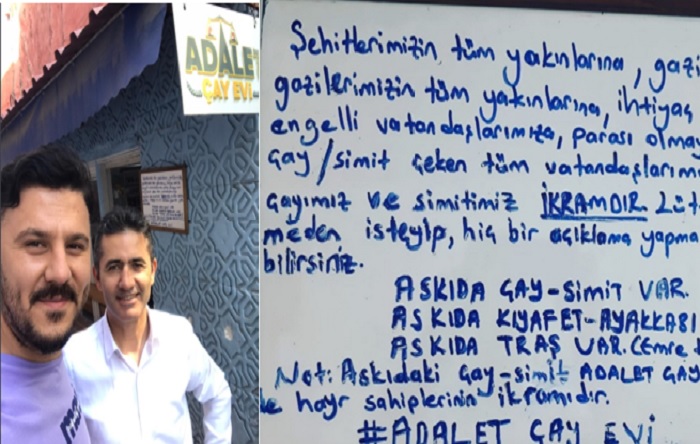 ADALET
ÇAY EVİ
Şehitlerimizin tüm yakınlarına, gazi
gazilerimizin tüm yakınlarına, ihtiyaç
engelli vatandaşlarımıza, parası olmay
çay/simit çeken tüm vatandaşlarımı
çayımız ve simitimiz İKRAMDIR. Lüt
meden isteyip, hiç bir açıklama yapma
bilirsiniz.
ASKIDA ÇAY-SİMİT VAR.
ASKIDA KIYAFET-AYAKKABI
ASKIDA TRAŞ VAR. (Emre
Not: Askıdaki çay-simit ADALET ÇAY
ve hayr sahiplerinin ikramıdır.
#ADALET ÇAY EVİ